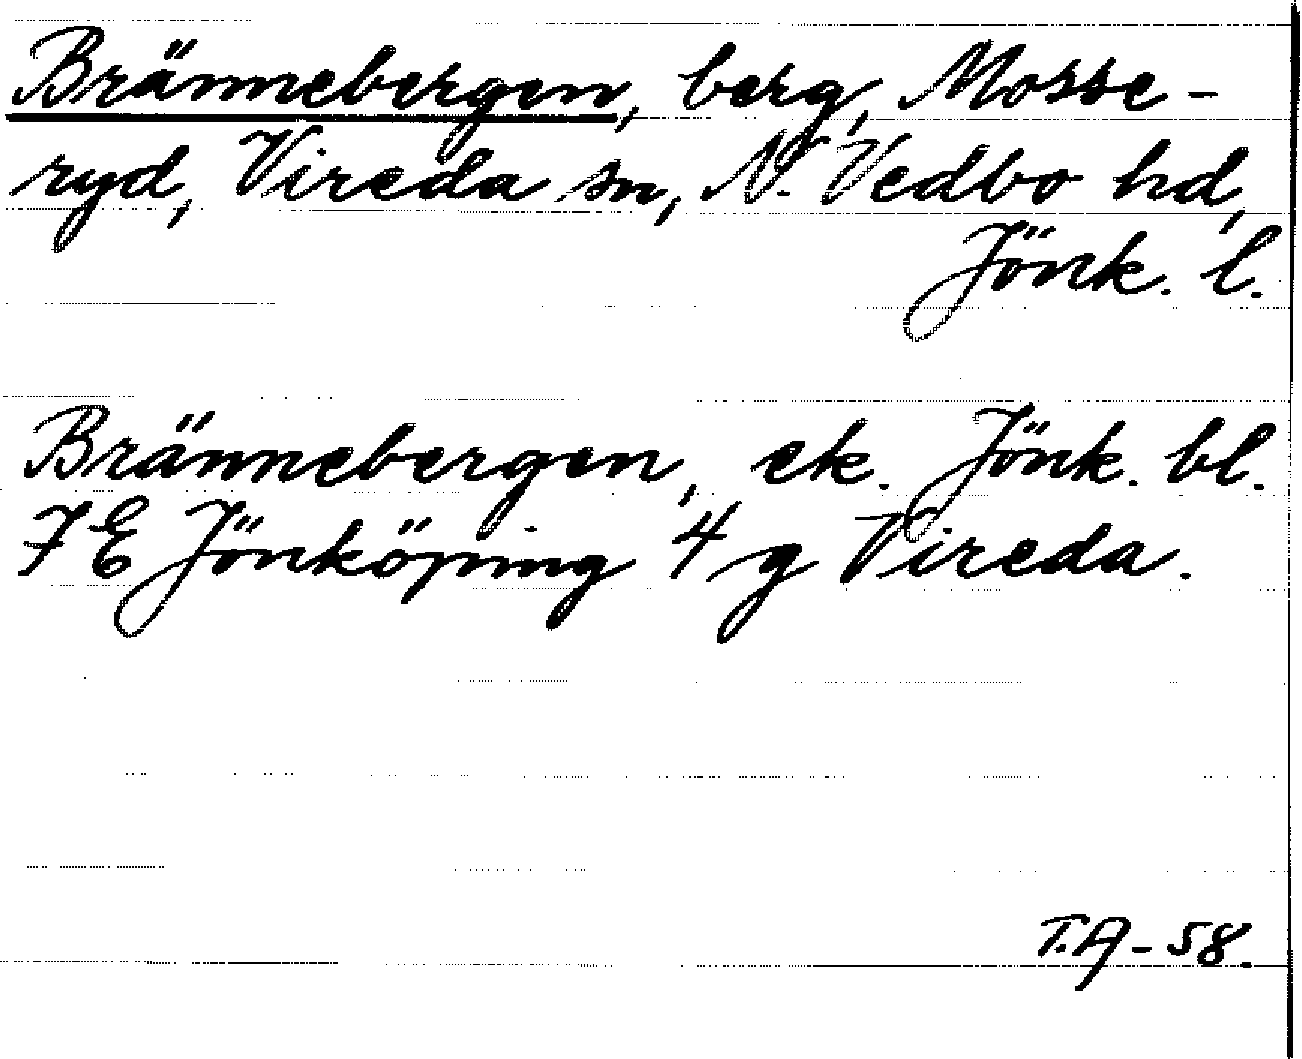 Brännebergen, berg, Mosse-
ryd, Vireda sn, N. Vedbo hd,
Jönk. l.
Brännebergen, ek. Jönk. bl.
7E Jönköping 4 g Vireda.
T.A-58.